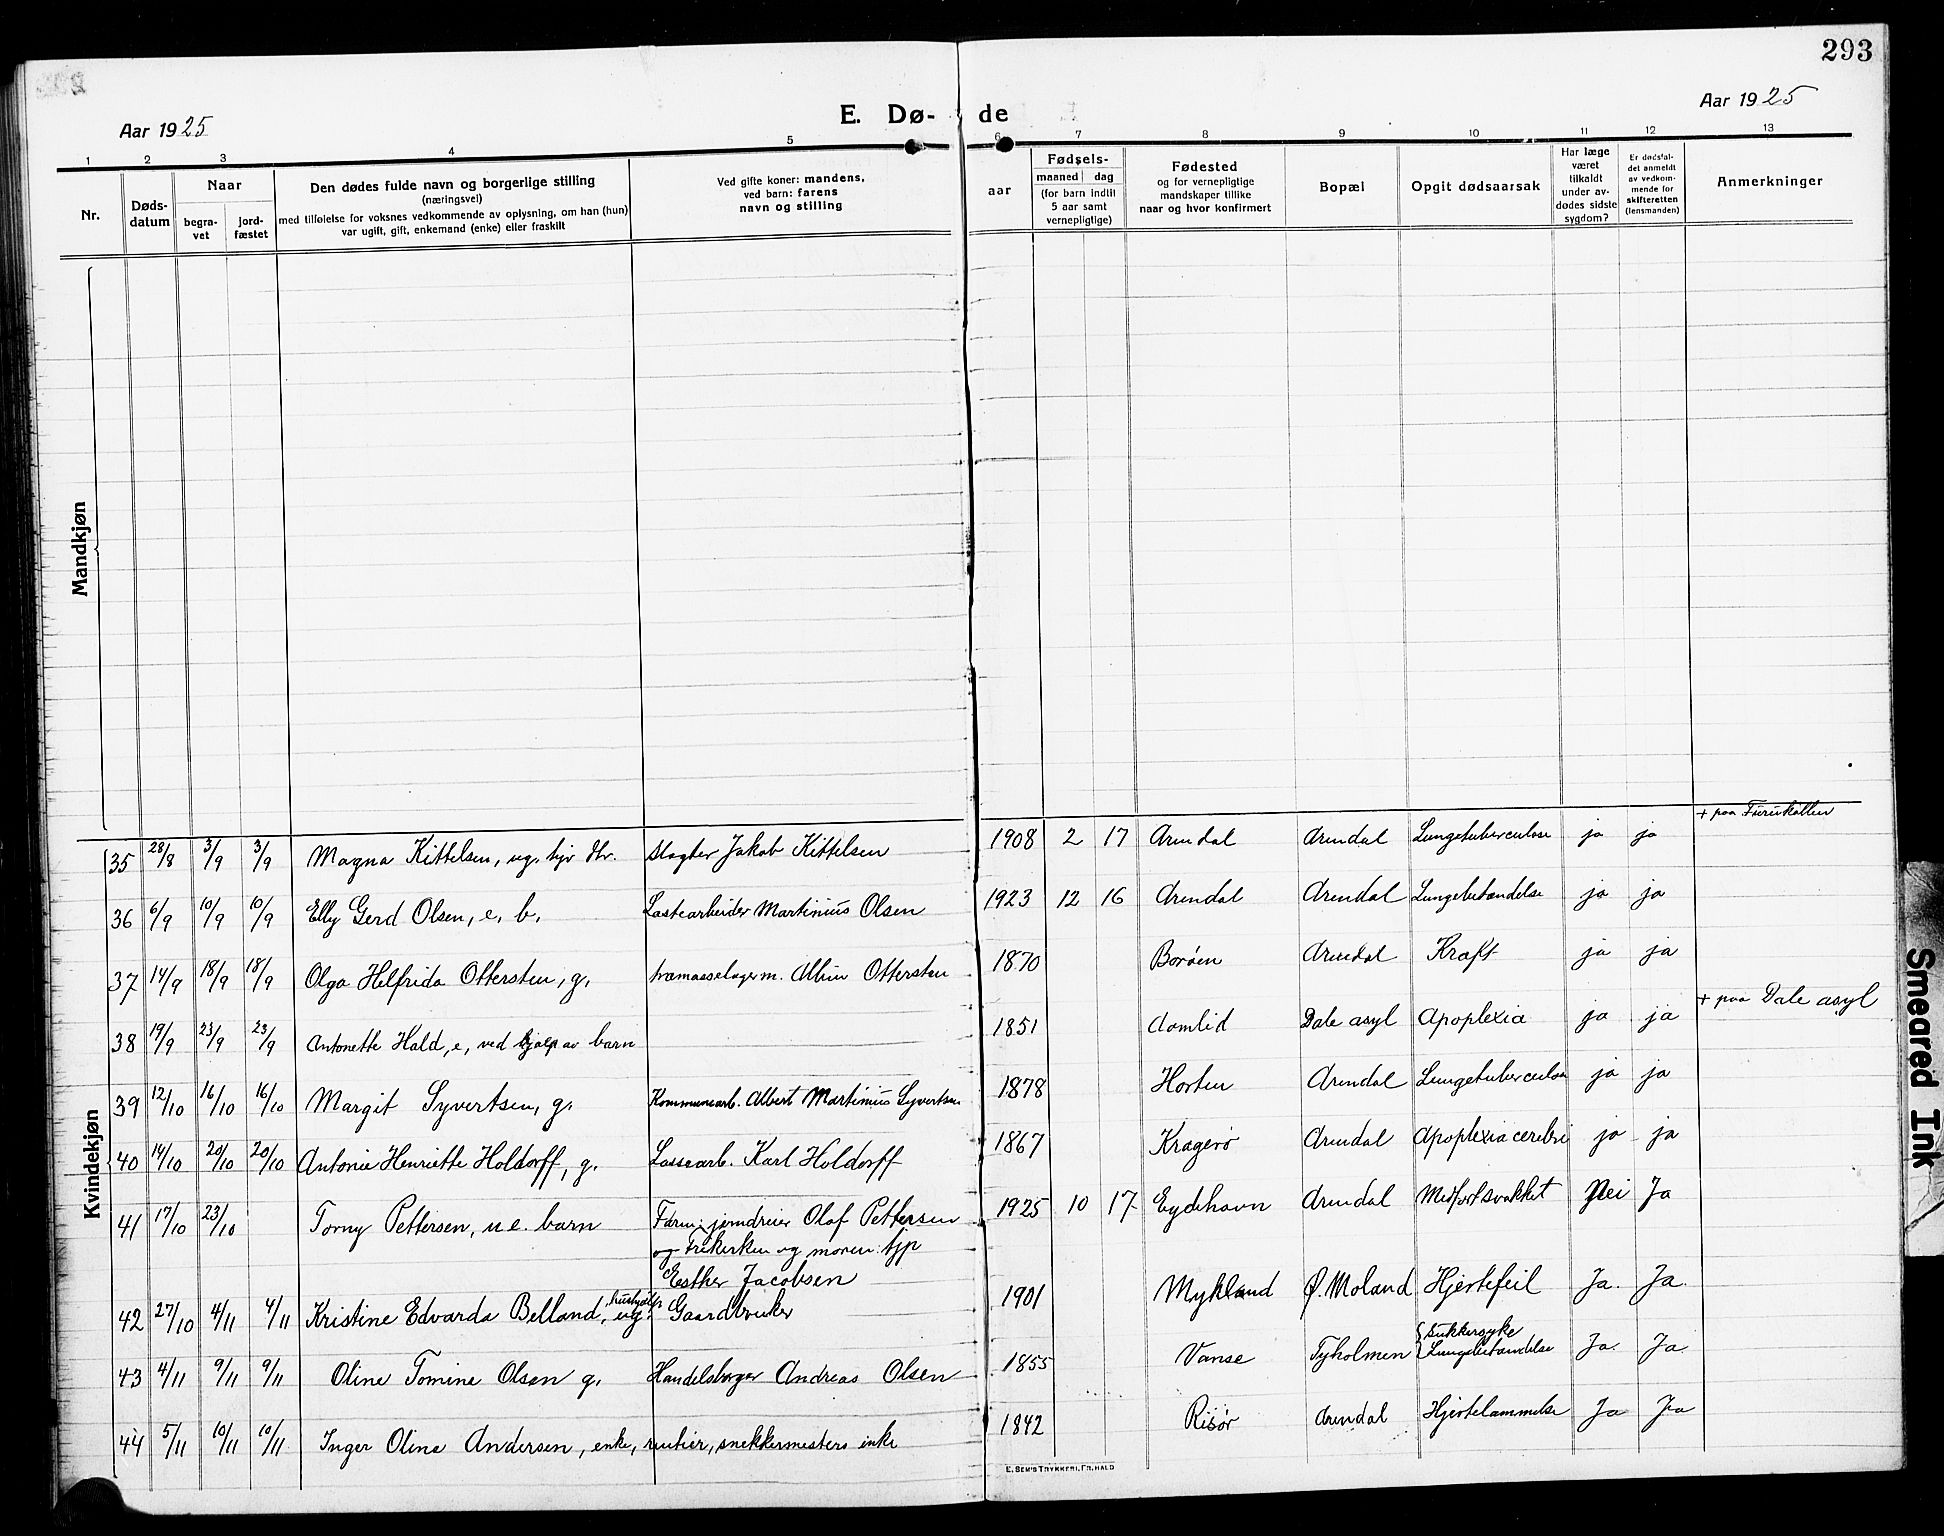 293
Aar 1925
E. Dø- de
Aar 1925
1 2 3 4 5 6 7 8 9 10 11 12 13
Nr.
Døds-
datum
Naar
begra-
vet
jord-
fæstet
Den dødes fulde navn og borgerlige stilling
(næringsvei)
med tilføielse for voksnes vedkommende av oplysning, om han (hun)
var ugift, gift, enkemand (enke) eller fraskilt
Ved gifte koner: mandens,
ved barn: farens
navn og stilling
aar
Fødsels-
maaned dag
(for barn indtil
5 aar samt
vernepligtige)
Fødested
og for vernepligtige
mandskaper tillike
naar og hvor konfirmert
Bopæl
Opgit dødsaarsak
Har læge
været
tilkaldt
under av-
dødes sidste
sygdom?
Er dødsfal-
det anmeldt
av vedkom-
mende for
skifteretten
(lensmanden)
Anmerkninger
Mandkjøn
Kvindekjøn
35 28/8 3/9 3/9 Magna Kittelsen, ug. hjv. Slagter Jakob Kittelsen 1908 2 17 Arendal Arendal Lungetuberculose ja ja + paa Furukollen
36 6/9 10/9 10/9 Elly Gerd Olsen, e. b. Lastearbeider Martinius Olsen 1923 12 16 Arendal Arendal Lungebetændelse ja ja
37 14/9 18/9 18/9 Olga Helfrida Ottersten, g. træmasselager m. Albin Ottersten 1870 Borøen Arendal Kræft ja ja
38 19/9 23/9 23/9 Antonette Hald, e, ved hjælp av barn 1851 Aamlid Dale asyl Apoplexia ja ja + paa Dale asyl
39 12/10 16/10 16/10 Margit Syvertsen, g. Kommunearb. Albert Martinius Syvertsen 1878 Horten Arendal Lungetuberculose ja ja
40 14/10 20/10 20/10 Antonie Henriette Holdorff, g. Lossearb. Karl Holdorff 1867 Kragerø Arendal Apoplexia cerebri ja ja
41 17/10 23/10 Torny Pettersen, u e. barn Faren: jerndreier Olaf Pettersen 1925 10 17 Eydehavn Arendal Medfødt svakhet Nei Ja
og Frikirken og moren: tjp
Esther Jacobsen
42 27/10 4/11 4/11 Kristine Edvarda Belland, hushjælp ug. Gaardbruker 1901 Mykland Ø. Moland Hjertefeil Ja. Ja.
43 4/11 9/11 9/11 Oline Tomine Olsen g. Handelsborger Andreas Olsen 1855 Vanse Tyholmen Sukkersyke Lungebetændelse Ja. Ja.
44 5/11 10/11 10/11 Inger Oline Andersen, enke, rentier, snekkermesters enke 1842 Risør Arendal Hjertelammelse Ja Ja
E. SEM'S TRYKKERI, FR.HALD
Smeared Ink